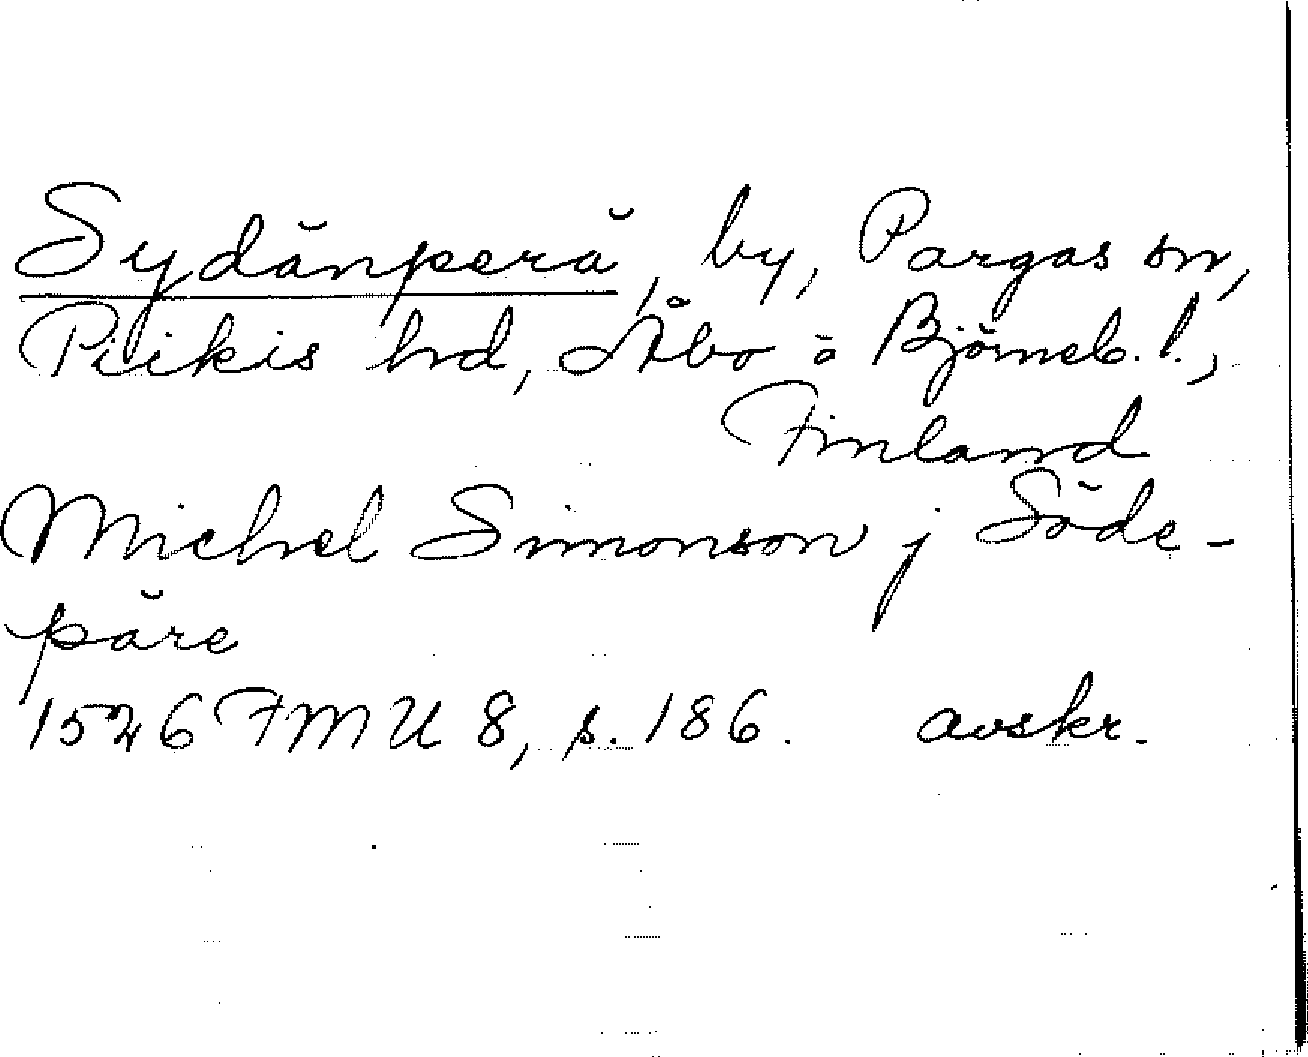 Sydänperä, by, Pargas sn,
Piikis hd, Åbo o Björneb. l.,
Finland
Michel Simonson j Söde-
päre
1526 FMU 8, s. 186. avskr.